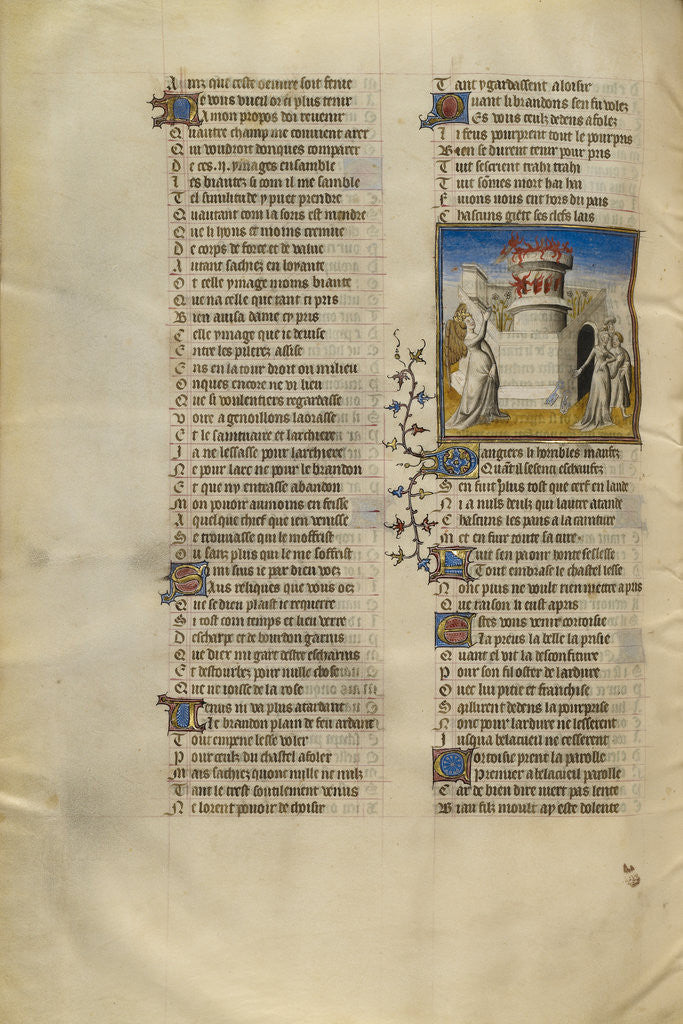 Ainz que ceste oeuure soit fenie
Ne vous vueil or ci plus tenir
A mon propos doi reuenir
Quautre champ me conuient arer
Qui voudroit donques comparer
De ces .ij. ymages ensamble
Les biautez si com il me samble
Tel similitude y puet prendre
Quautant com la soris est mendre
Que li lyons et moins cremue
De corps de force et de value
Autant sachiez en loyaute
Ot celle ymage moins biaute
Que na celle que tant ci pris
Bien auisa dame cypris
Celle ymage que ie deuise
Entre les pilerez assise
Ens en la tour droit ou milieu
Onques encore ne vi lieu
Que si voulentiers regardasse
Voire a genoillons laorasse
Et le saintuaire et larchiere
Ja ne lessasse pour larchiere
Ne pour larc ne pour le brandon
Et que ny entrasse abandon
Mon pouoir aumoins en feisse
A quelque chief que ien venisse
Se trouuasse qui le moffrist
Ou sanz plus qui le me soffrist
Si mi suis ie par dieu voez
Aus reliques que vous oez
Que se dieu plaist ie requerre
Si tost com temps et lieu verre
Descharpe et de bourdon garnis
Que diex mi gart destre escharnis
Et destourbez pour nulle chose
Que ne ioisse de la rose
Venus ni va plus atardant
Le brandon plain de feu ardant
Tout empene lesse voler
Pour ceulz du chastel afoler
Mais sachiez quonc nulle ne nulz
Tant le trest soutilement venus
Ne lorent pouoir de choisir
Tant y gardassent a loisir
Quant li brandons sen fu volez
Es vous ceulz dedens afolez
Li feus pourprent tout le pourpris
Bien se durent tenir pour pris
Tuit sescrient trahi trahi
Tuit sommes mort hai hai
Fuions nous ent hors du pais
Chascuns giete ses clefs lais
Dangiers li horribles maufez
Quant il se senti eschaufez
Sen fuit plus tost que cerf en lande
Ni a nuls deulz qui lautre atande
Chascuns les pans a la cainture
Met en fuir toute sa cure
Fuit sen paour honte seslesse
Tout embrase le chastel lesse
Nonc puis ne voult rien mettre a pris
Que raison li eust apris
Estes vous venir cortoisie
La preus la belle la prisie
Quant el vit la desconfiture
Pour son fil oster de lardure
Ouec lui pitie et franchise
Saillirent dedens la pourprise
Nonc pour lardure ne lesserent
Jusqua belacueil ne cesserent
Cortoisie prent la parolle
Premier a belacueil parolle
Car de bien dire niert pas lente
Biau filz moult ay este dolente